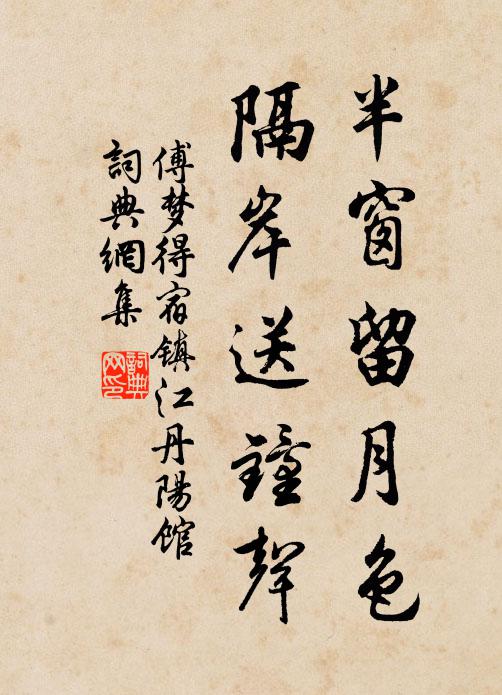 半窗留月色
隔岸送鐘聲
傅梦得宿镇江丹陽馆
詞典網集
詞典网印